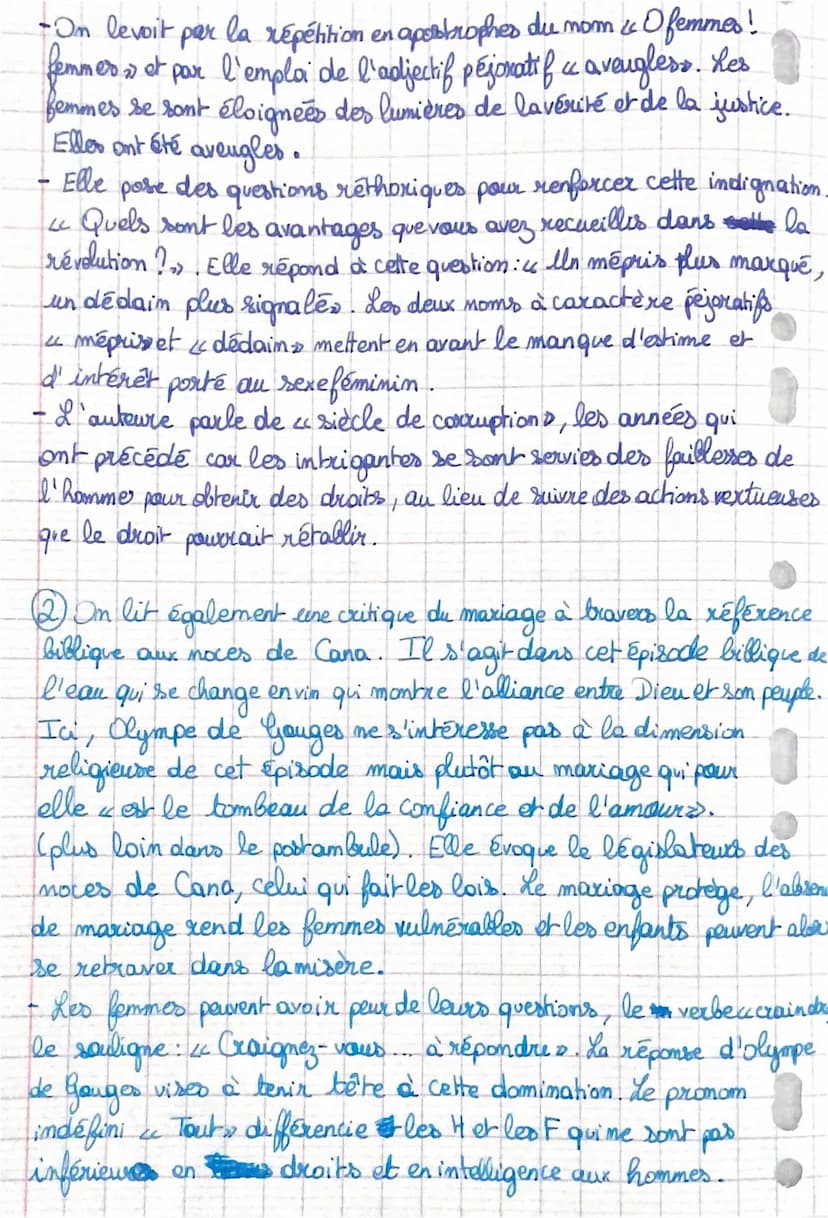 - On levoit par la répétition en apostrophes du nom « O femmes !
femmes » et par l'emploi de l'adjectif péjoratif « aveugles ». Les
femmes se sont éloignées des lumières de la vérité et de la justice.
Elles ont été aveugles.
- Elle pose des questions réthoriques pour renforcer cette indignation.
« Quels sont les avantages que vous avez recueillis dans la
révolution ? ». Elle répond à cette question : « Un mépris plus marqué,
un dédain plus signalé ». Les deux noms à caractère péjoratifs
« mépris » et « dédain » mettent en avant le manque d'estime et
d'intérêt porté au sexe féminin.
- L'auteure parle de « siècle de corruption », les années qui
ont précédé car les intrigantes se sont servies des faiblesses de
l'hommes pour obtenir des droits, au lieu de suivre des actions vertueuses
que le droit pourrait rétablir.
② On lit également une critique du mariage à travers la référence
biblique aux noces de Cana. Il s'agit dans cet épisode biblique de
l'eau qui se change en vin qui montre l'alliance entre Dieu et son peuple.
Ici, Olympe de Gouges ne s'intéresse pas à la dimension
religieuse de cet épisode mais plutôt au mariage qui pour
elle « est le tombeau de la confiance et de l'amour ».
(plus loin dans le postambule). Elle évoque le législateurs des
noces de Cana, celui qui fait les lois. Le mariage protège, l'absen
de mariage rend les femmes vulnérables et les enfants peuvent alor
se retrouver dans la misère.
- Les femmes peuvent avoir peur de leurs questions, le verbe « craindr
le souligne : « Craignez-vous... à répondre ». La réponse d'olympe
de Gouges vises à tenir tête à cette domination. Le pronom
indéfini « Tout » différencie les H et les F qui ne sont pas
inférieures en droits et en intelligence aux hommes.